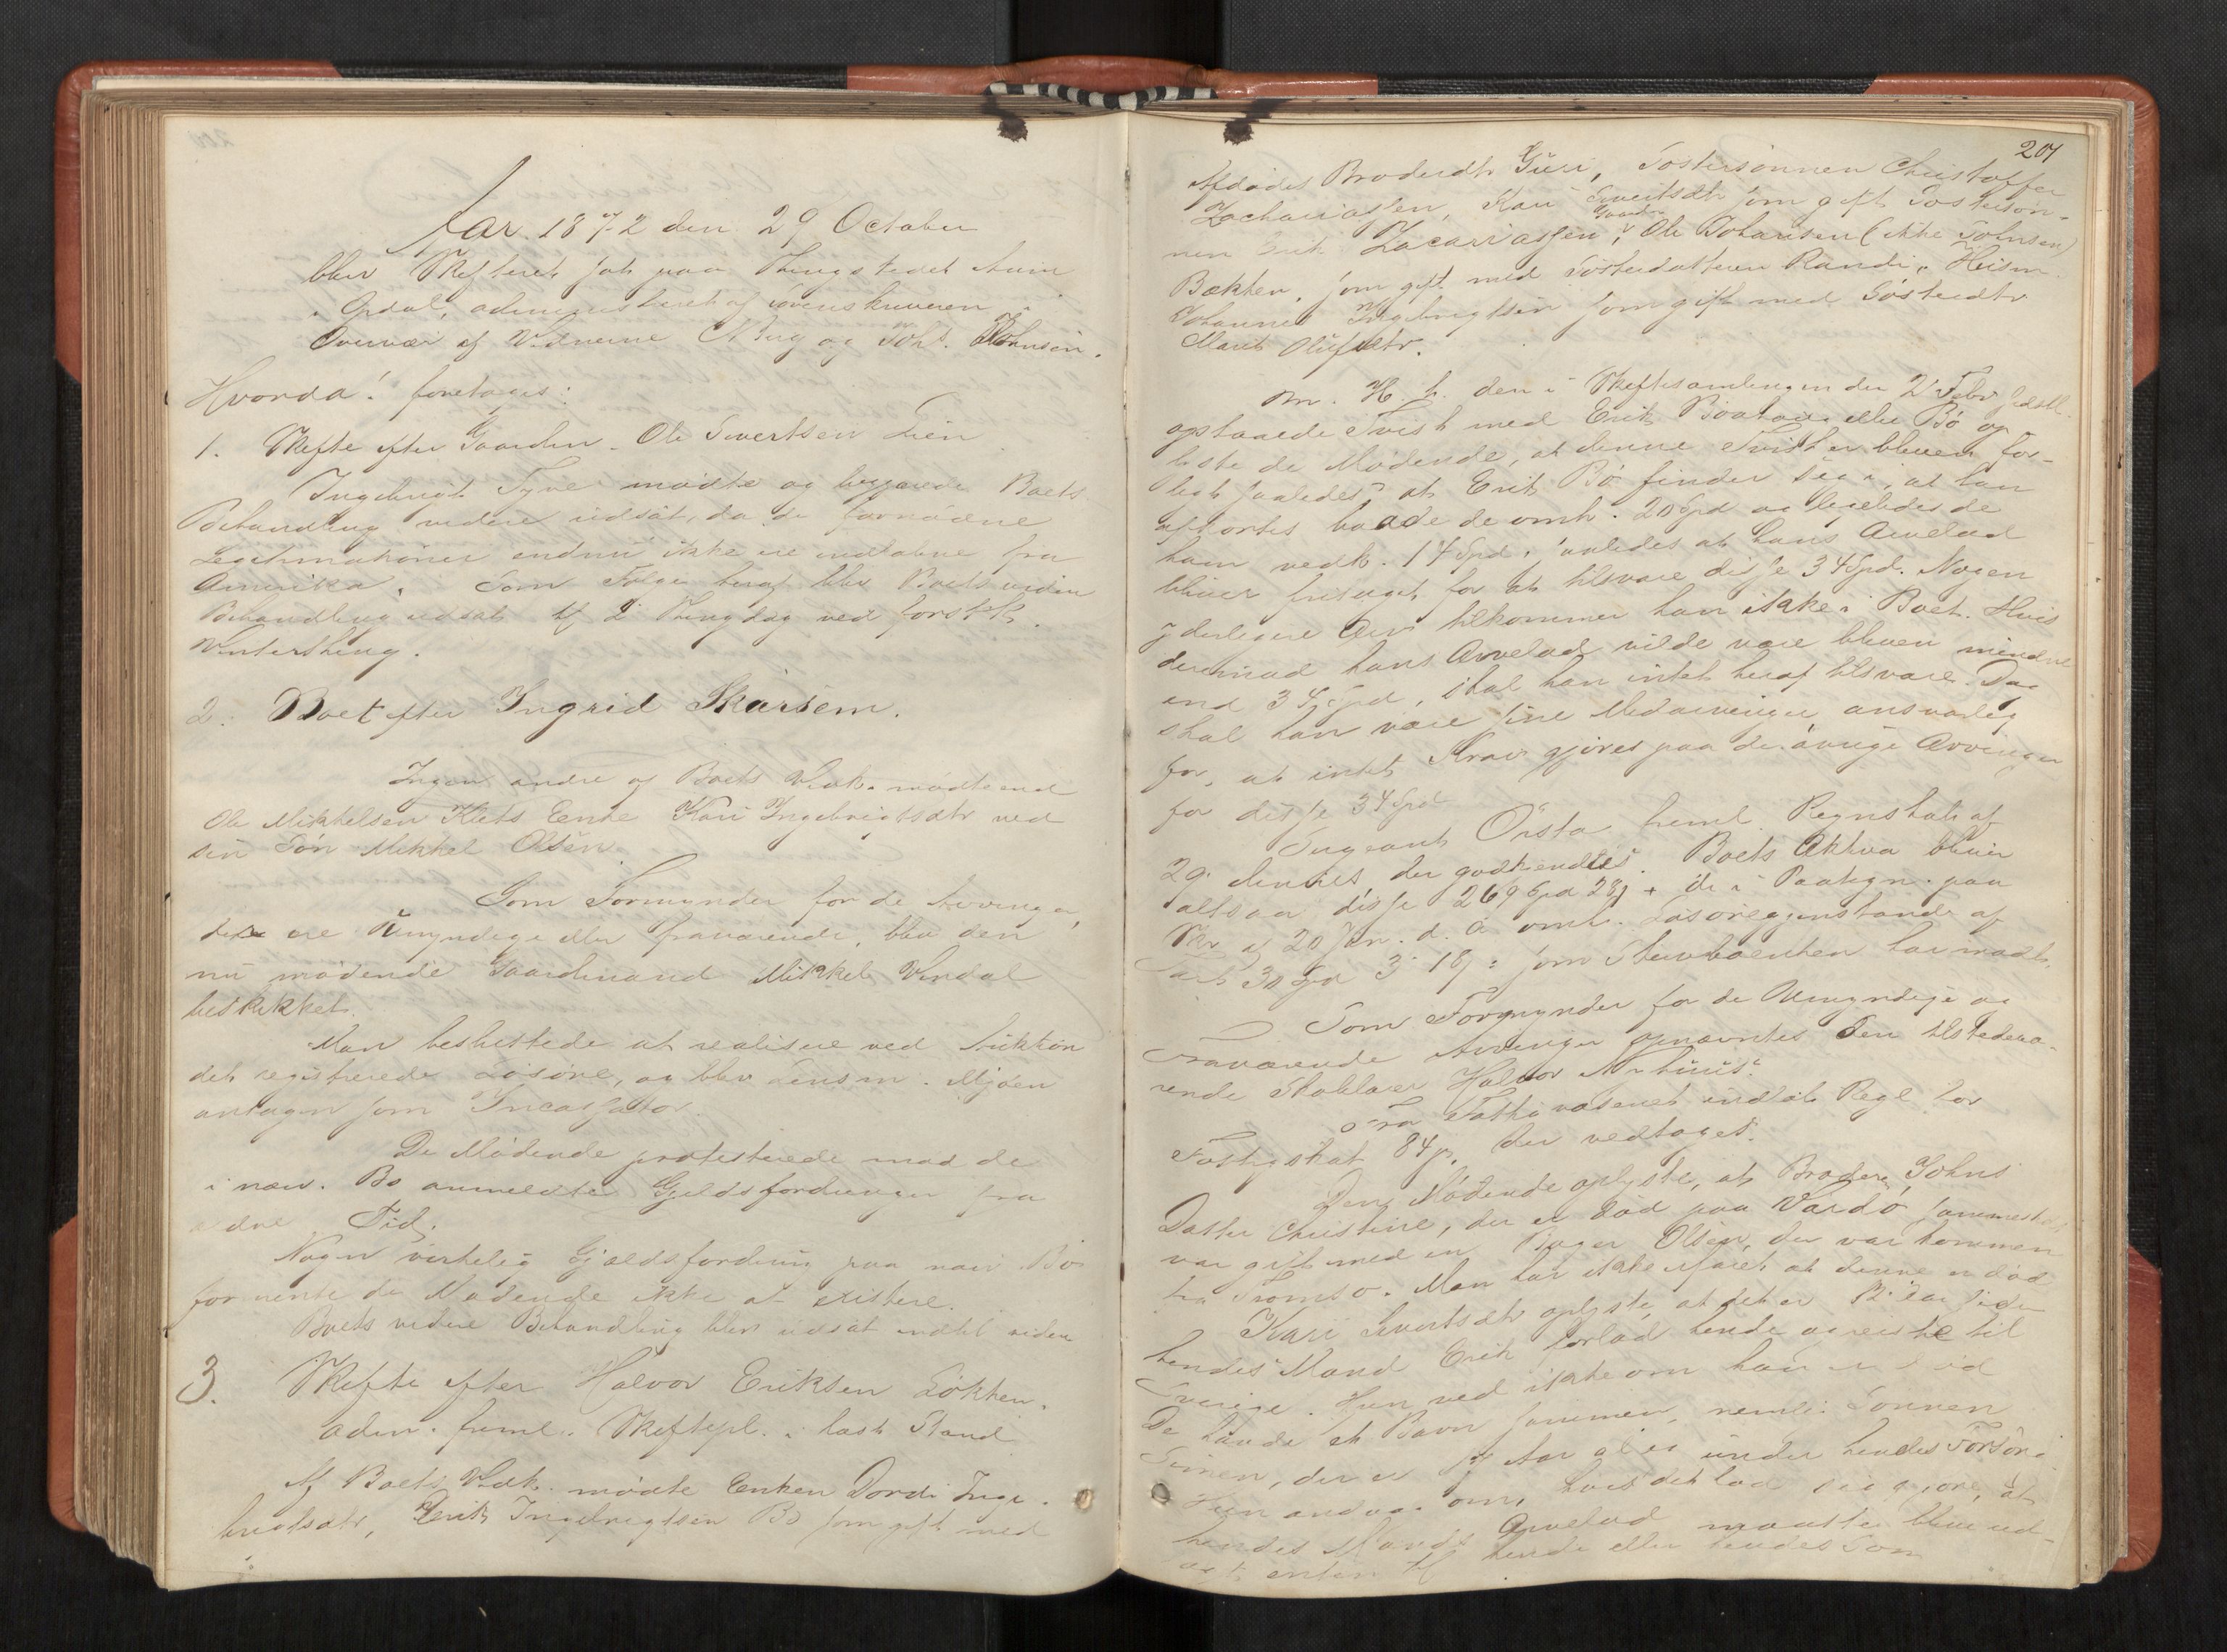 Aar 1872 den 29 October
blev Skifteret sat paa Thingstedet Aune
i Opdal, administreret af Sorenskriveren i
Overvær af Vidnerne og Joh. Johnsen.
Hvorda! foretages:
1. Skifte efter Gaardm. Ole Sivertsen Lien
Ingebrigt Tyve mødte og begjærede Boets
Behandling videre udsat, da de fornødne
Legitimationer endnu ikke ere indløbne fra
Amerika. Som Følge heraf blev Boets videre
Behandling udsat til 2 Thingdag ved førstk.
Vinterthing.
2. Boet efter Ingrid Skarsem.
Ingen andre af Boets Vedk. mødte end
Ole Mikkelsen Klets Enke Kari Ingebrigtsdtr ved
sin Søn Mikkel Olsen
Som Formynder for de Arvinger,
der ere Umyndige eller fraværende, blev den
nu mødende Gaardmand Mikkel Vindal
beskikket.
Man besluttede at realisere ved Auktion
det registrerede Løsøre, og blev Lensm. Mjøen
antagen som Incassator.
De Mødende protesterede mod de
i næv. Bo anmeldte Gjeldsfordringer fra
ældre Tid.
Nogen virkelig Gjældsfordring paa næv. Bo
formente de Mødende ikke at existere.
Boets videre Behandling blev udsat indtil videre
3. Skifte efter Halvor Eriksen Løkken.
Adm. freml. Skiftepl. i læst Stand
Af Boets Vedk. mødte Enken Dordi Inge-
brigtsdtr, Erik Ingebrigtsen Bø som gift med
201
Afdødes Broderdtr Guri, Søstersønnen Christoffer
Zachariassen, Kari Sivertsdtr som gift Søstersøn-
nen Erik Zacariassen, Ole Johansen (ikke Johnsen)
Bækken, som gift med Søsterdatteren Randi, Husm.
Johannes Ingebrigtsen som gift med Søsterdtr
Marit Olufsdtr.
M. H. t. den i Skiftesamlingen den 2 Febr sidstl.
opstaaede Tvist med Erik Bø op-
lyste de Mødende, at denne Tvist er bleven for-
ligt saaledes, at Erik Bø finder sig i, at han
afkortes baade de omh. 20 Spd og ligeledes de
ham vedk. 14 Spd, saaledes at hans Arvelod
bliver fritaget for at tilsvare disse 34 Spd. Nogen
yderligere Arv tilkommer han ikke i Boet. Hvis
derimod hans Arvelod vilde være bleven mindre
end 34 Spd, skal han intet heraf tilsvare. Dog
skal han være sine Medarvinger ansvarlig
for, at intet Krav gjøres paa de øvrige Arvinger
for disse 34 Spd
Sergeant Ørsta freml. Regnskab af
29 dennes, der godkjendtes. Boets Aktiva bliver
altsaa disse 269 Spd 28 s + de i Paategn. paa
Skr. af 20 Jan. d. A. omh. Løsøregjenstande af
Taxt 30 Spd 3 18 s som Stervboenken har modt.
Som Formynder for de Umyndige og
Fraværende Arvinger opnævntes den tilstedevæ-
rende Skolelærer Halvor
Fra Fattigvæsenet indløb Regl. for
Fattigskat 84 s, der vedtoges.
Den Mødende oplyste, at Broderen Johns
Datter Christine, der er død paa Vardø sammesteds
var gift med en Olsen, der var kommen
fra Tromsø. Man har ikke erfaret at denne er død
Kari Sivertsdtr oplyste, at det er 12 Aar siden
hendes Mand Erik forlod hende og reiste til
Sverige. Hun ved ikke om han er i Live
De havde et Barn sammen, nemlig Sønnen
Simen, der er Aar og er under hendes Forsørg.
Hun androg om, hvis det lod sig gjøre, at
hendes Mands Arvelod maatte blive ud-
lagt enten til hende eller hendes Søn